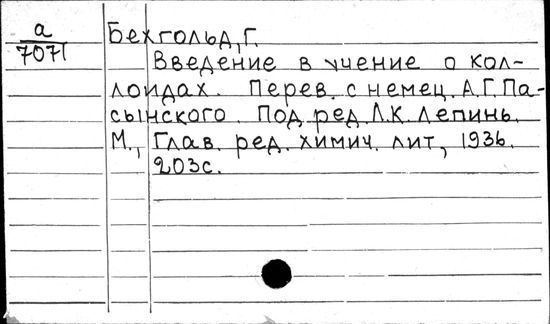 а
7071
Бехгольд, Г.
Введение в учение о кол-
лоидах. Перев. с немец. А.Г. Па-
сынского. Под ред. Л.К. Лепинь.
М., Глав. ред. химич. лит, 1936.
203с.